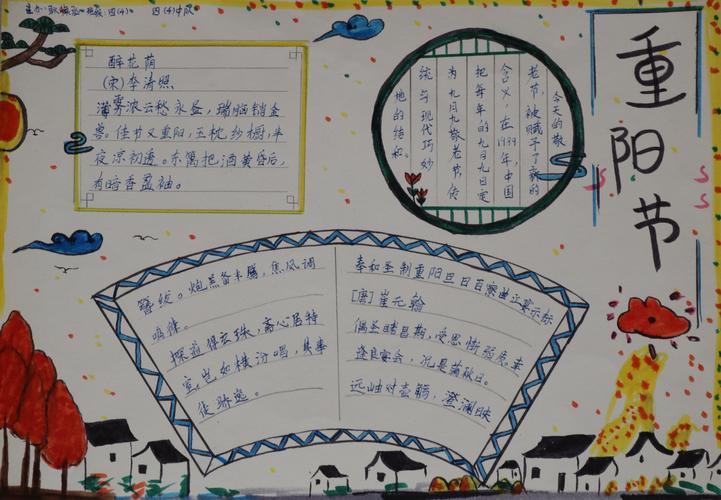 四(4)中队
重阳节
醉花荫
(宋)李清照
薄雾浓云愁永昼,瑞脑销金
兽,佳节又重阳,玉枕纱橱,半
夜凉初透。东篱把酒黄昏后,
有暗香盈袖。
今天的敬
老节,被赋予了新的
含义,在1989年,中国
把每年的九月九日定
为九月九敬老节传
统与现代巧妙
地的结和。
奉和圣制重阳旦日百寮曲江宴示怀
[唐]崔元翰
偶圣睹昌期,受恩惭弱质。幸
逢良宴会,况是清秋日。
远岫对壶觞,澄澜映
簪绂。炮羔备丰膳,集凤调
鸣律。
探道得玄珠,斋心居特
室。岂如横汾唱,其事
徒骄逸。